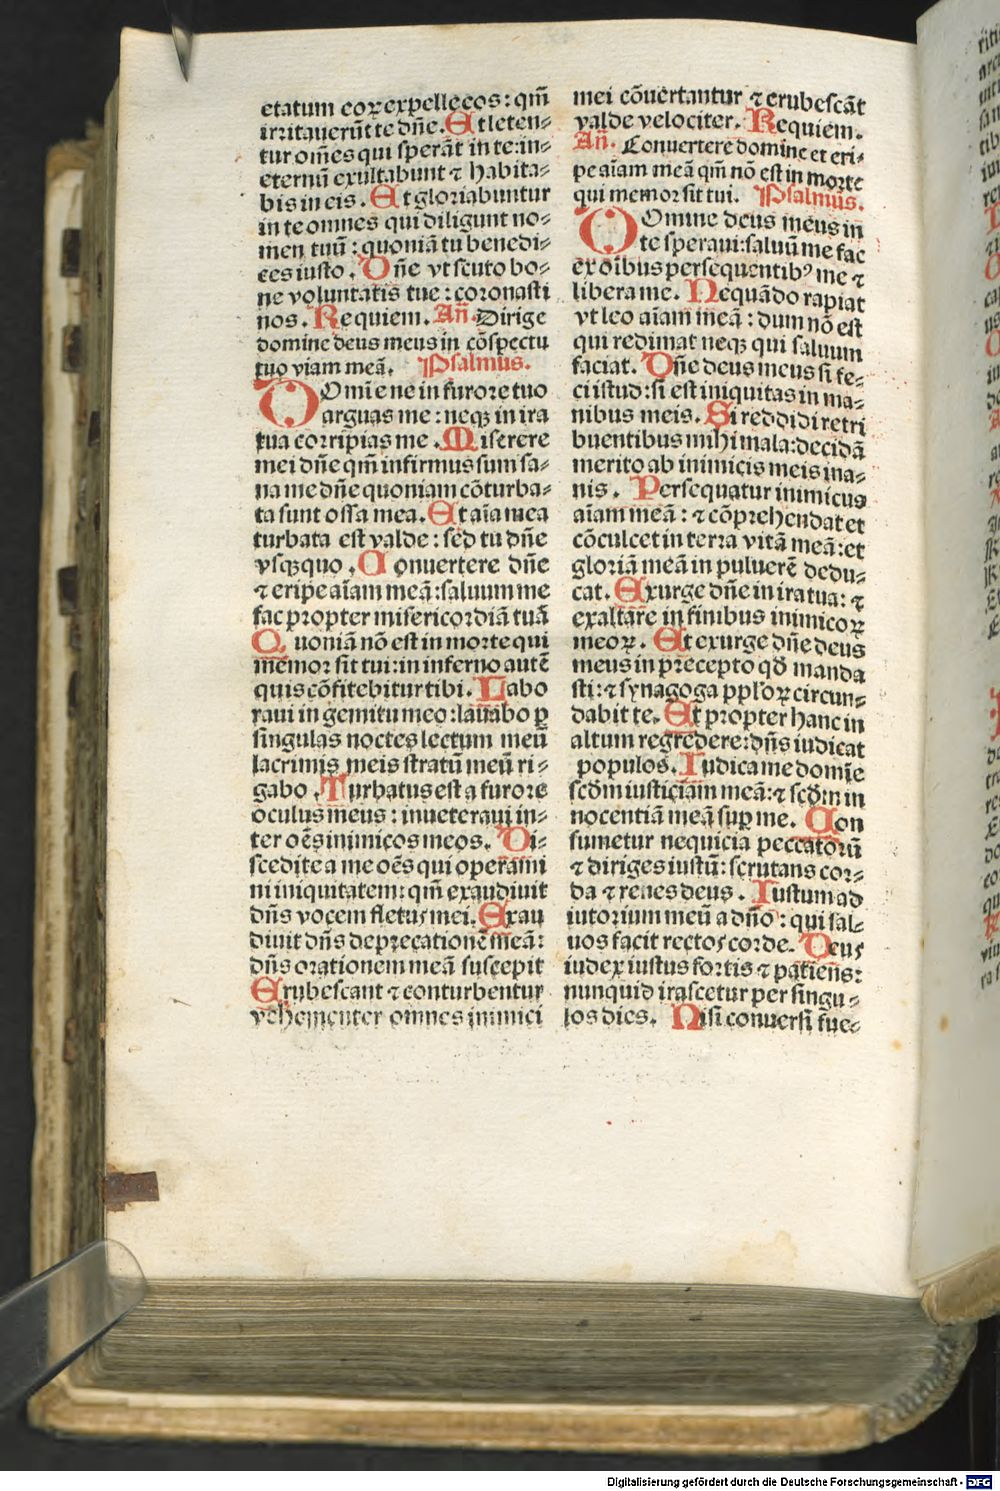 etatum coꝝ expelle eos: qm̄
irritauerūt te dn̄e. Et leten⸗
tur om̄es qui sperāt in te: in⸗
eternū exultabunt ⁊ habita⸗
bis in eis. Et gloriabuntur
in te omnes qui diligunt no⸗
men tuū: quoniā tu benedi⸗
ces iusto. Dn̄e vt scuto bo⸗
ne voluntatis tue: coronasti
nos. Requiem. An̄. Dirige
domine deus meus in cōspectu
tuo viam meā. Psalmus.
DOmiene in furore tuo
arguas me: neqꝫ in ira
tua corripias me. Miserere
mei dn̄e qm̄ infirmus sum sa⸗
na me dn̄e quoniam cōturba⸗
ta sunt ossa mea. Et aīa mea
turbata est valde: sed tu dn̄e
vsqꝫquo. Conuertere dn̄e
⁊ eripe aīam meā: saluum me
fac propter misericordiā tuā
Quoniā nō est in morte qui
memor sit tui: in inferno autē
quis cōfitebitur tibi. Labo
raui in gemitu meo: lauabo ꝑ
singulas noctes lectum meū
lacrimis meis stratū meū ri⸗
gabo. Turbatus est a furore
oculus meus: inueteraui in⸗
ter oēs inimicos meos. Di⸗
scedite a me oēs qui operami
ni iniquitatem: qm̄ exaudiuit
dn̄s vocem fletus mei. Exau
diuit dn̄s deprecationē meā:
dn̄s orationem meā suscepit
Erubescant ⁊ conturbentur
vehementer omnes inimici
mei cōuertantur ⁊ erubescāt
valde velociter. Requiem.
An̄. Conuertere domine et eri⸗
pe aīam meā qm̄ nō est in morte
qui memor sit tui. Psalmus.
DOmine deus meus in
te speraui: saluū me fac
ex oībus persequentibꝰ me ⁊
libera me. Nequādo rapiat
vt leo aīam meā: dum nō est
qui redimat neqꝫ qui saluum
faciat. Dn̄e deus meus si fe⸗
ci istud: si est iniquitas in ma⸗
nibus meis. Si reddidi retri
buentibus mihi mala: decidā
merito ab inimicis meis ina⸗
nis. Persequatur inimicus
aīam meā: ⁊ cōprehendat et
cōculcet in terra vitā meā: et
gloriā meā in puluerē dedu⸗
cat. Exurge dn̄e in ira tua: ⁊
exaltare in finibus inimicoꝝ
meoꝝ. Et exurge dn̄e deus
meus in precepto qd̄ manda
sti: ⁊ synagoga pploꝝ circun⸗
dabit te. Et propter hanc in
altum regredere: dn̄s iudicat
populos. Iudica me domīe
scd̄m iusticiam meā: ⁊ scd̄m in
nocentiā meā suꝑ me. Con
sumetur nequicia peccatorū
⁊ diriges iustū: scrutans cor⸗
da ⁊ renes deus. Iustum ad
iutorium meū a dn̄o: qui sal⸗
uos facit rectos corde. Deus
iudex iustus fortis ⁊ patiens:
nunquid irascetur per singu⸗
los dies. Nisi conuersi fue⸗
Digitalisierung gefördert durch die Deutsche Forschungsgemeinschaft - DFG